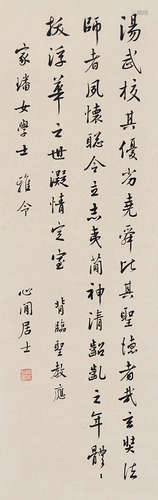 湯武校其優劣堯舜比其聖德者哉玄奘法
師者夙懷聰令立志夷簡神清齠齔之年體
拔浮華之世凝情定室 背臨聖教應
家璠女學士 雅令
心閒居士